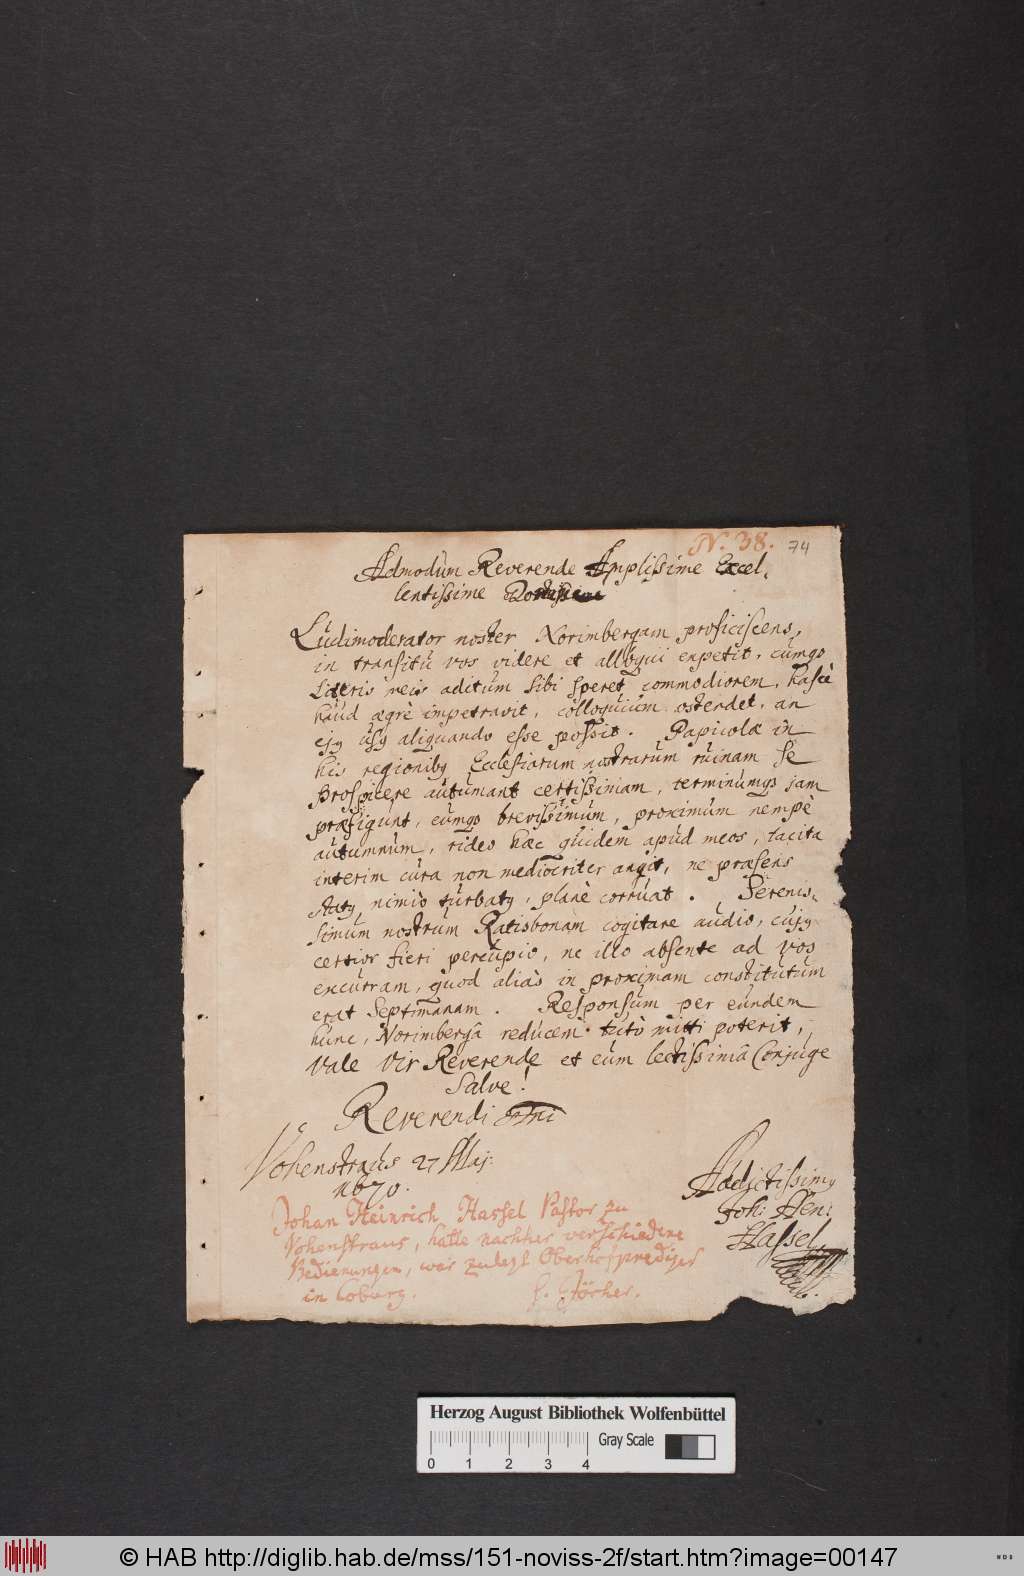 N. 38. 74
Admodùm Reverende Amplissime Excel-
lentissime
Ludimoderator noster Norimbergam proficiscens,
in transitu vos videre et alloqui expetit, cumq;
literis meis aditum sibi speret commodiorem, hasce
haud ægrè impetravit, colloquium ostendet, an
ejq usq aliquando esse possit. Papicolæ in
his regionibq Ecclesiarum nostrarum ruinam se
prospicere autumant certissimam, terminumq; jam
præfigunt, eumq; brevissimum, proximum nempè
autumnum, rideo hæc quidem apud meos, tacita
interim cura non mediocriter angit, ne præsens
statq nimiò turbatq, planè corruat. Serenis-
simum nostrum Ratisbonam cogitare audio, cujq
certior fieri percupio, ne illo absente ad vos
excurram, quod aliàs in proximam constitutum
erat Septimanam. Responsum per eundem
hunc, Norimbergâ reducem tutò mitti poterit,
Vale Vir Reverende et cum lectissimâ Conjuge
Salve!
Reverendi
Vohenstraus 27 Maj:
1670.
Addictissimq
Joh: Hen:
Hassel
Johan Heinrich Hassel Pastor zu
Vohenstraus, hatte nachher verschiedene
Bedienungen, war zuletzt Oberhofprediger
in Coburg. s. Jöcher.
Herzog August Bibliothek Wolfenbüttel
Gray Scale
0 1 2 3 4
© HAB http://diglib.hab.de/mss/151-noviss-2f/start.htm?image=00147